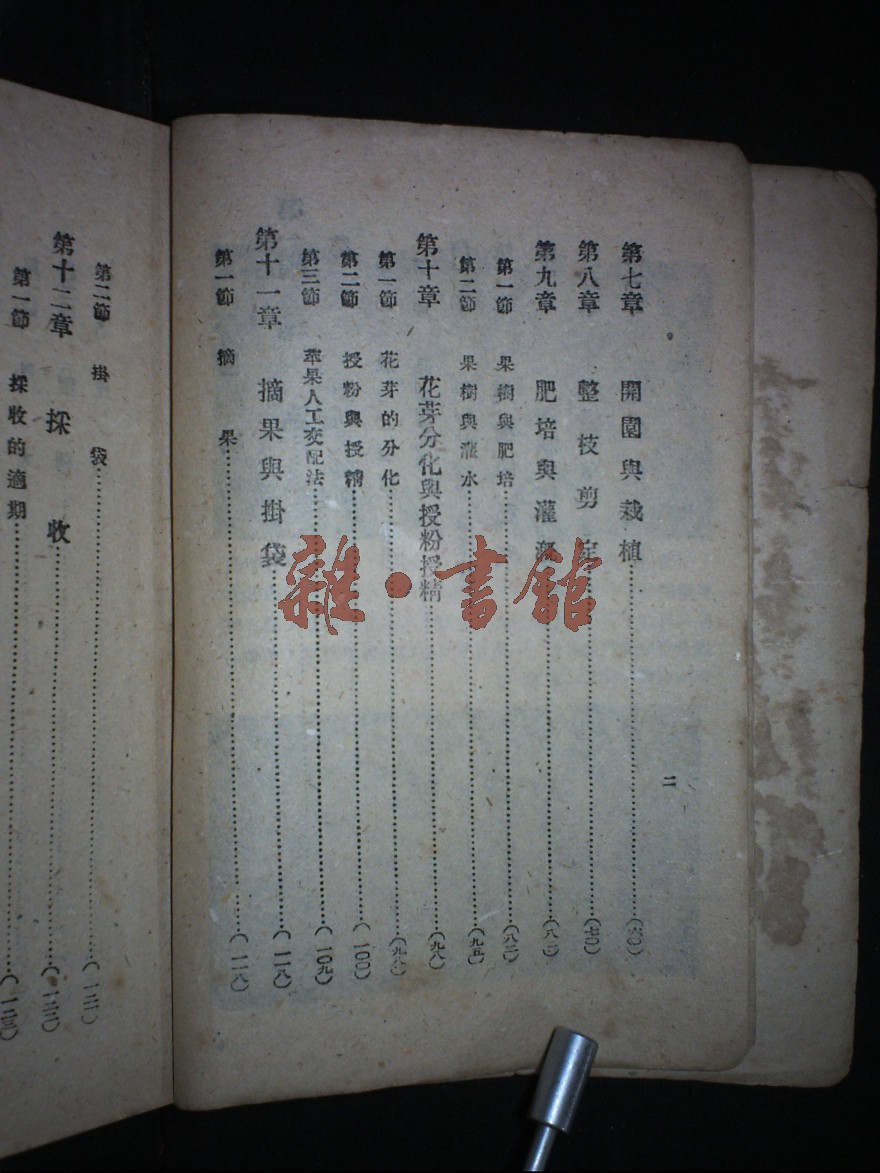 二
第七章 開園與栽植……(六〇)
第八章 整枝剪定……(七〇)
第九章 肥培與灌溉……(八二)
第一節 果樹與肥培……(八二)
第二節 果樹與灌水……(九五)
第十章 花芽分化與授粉授精……(九八)
第一節 花芽的分化……(九八)
第二節 授粉與授精……(一〇〇)
第三節 苹果人工交配法……(一〇九)
第十一章 摘果與掛袋……(一一八)
第一節 摘果……(一一八)
第二節 掛袋……(一二一)
第十二章 採收……(一二三)
第一節 採收的適期……(一二三)
雜·書館